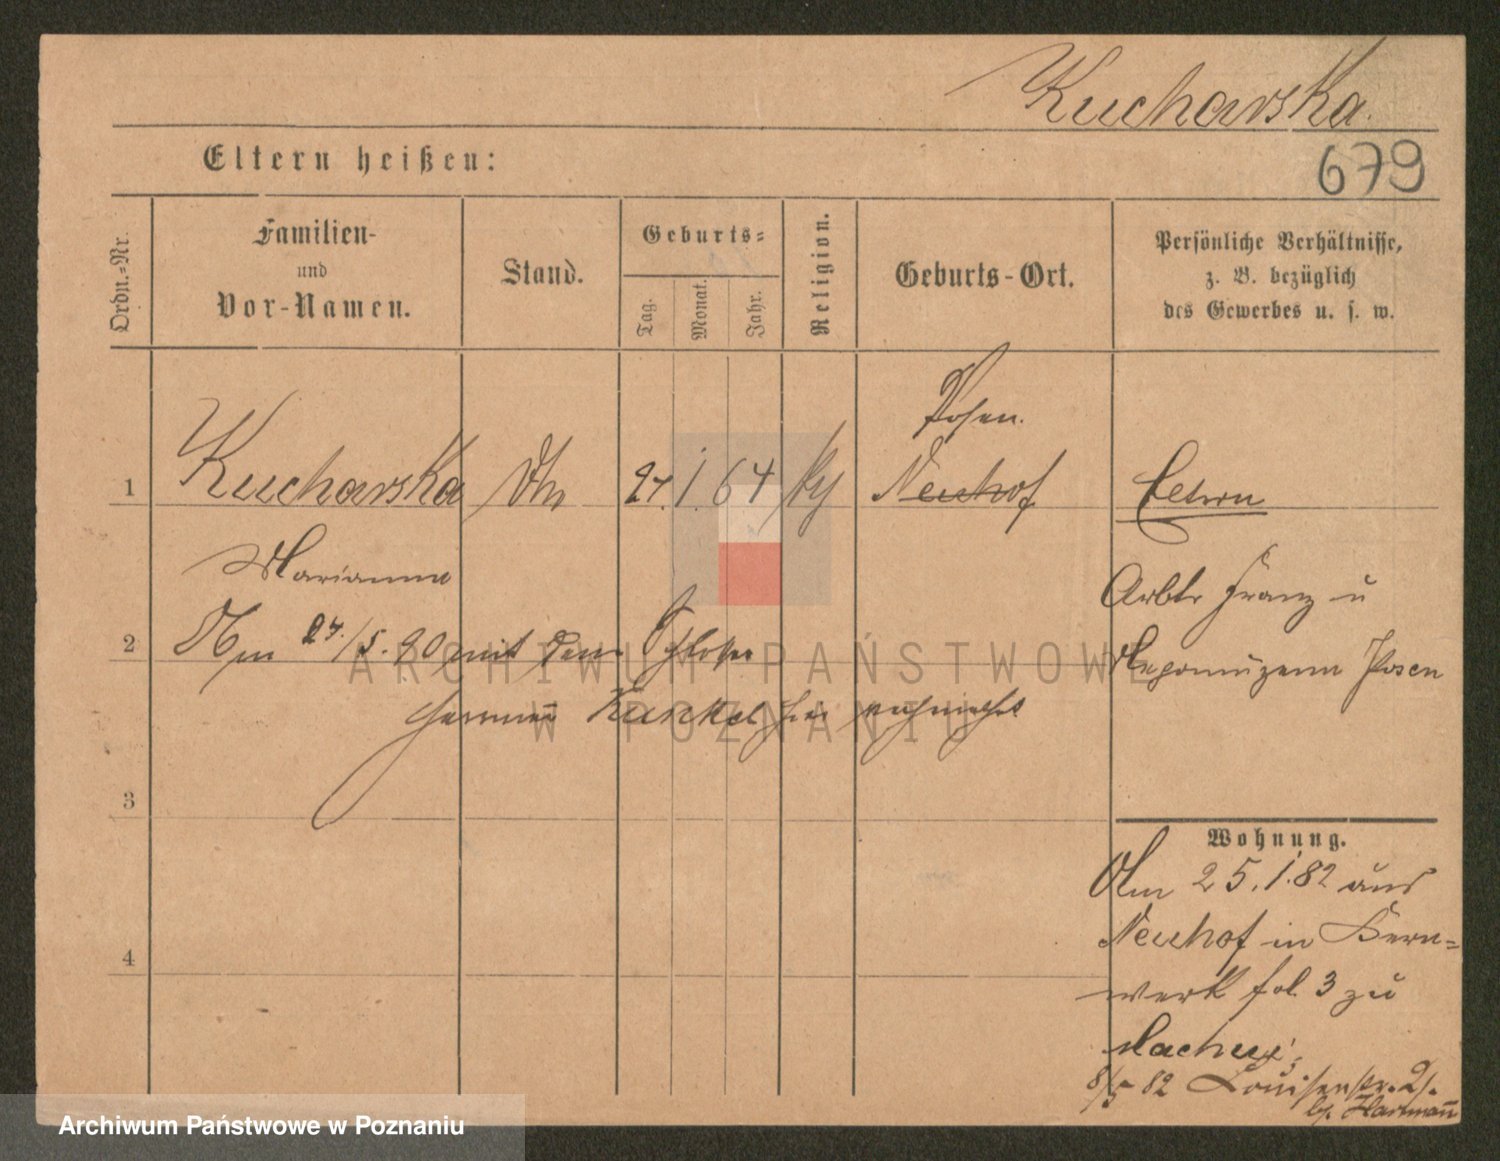 Kucharska.
679
Eltern heißen:
Ordn.-Nr.
Familien-
und
Vor-Namen.
Stand.
Geburts-
Tag.
Monat.
Jahr.
Religion.
Geburts-Ort.
Persönliche Verhältnisse,
z. B. bezüglich
des Gewerbes u. s. w.
Posen.
1 Kucharska 24. 1. 64 Neuhof Eltern
Marianna
Arbtr Franz u
2 Am 24./5. 90 mit dem Schlosser
Nepomuzena Posen
Hermann Kunkel hier
3
Wohnung.
Am 25. 1. 82 aus
Neuhof in Kern=
werk fol. 3 zu
4
8/5 82 Louisenstr. 
b/. Hartmann
ARCHIWUM PAŃSTWOWE
W POZNANIU
Archiwum Państwowe w Poznaniu